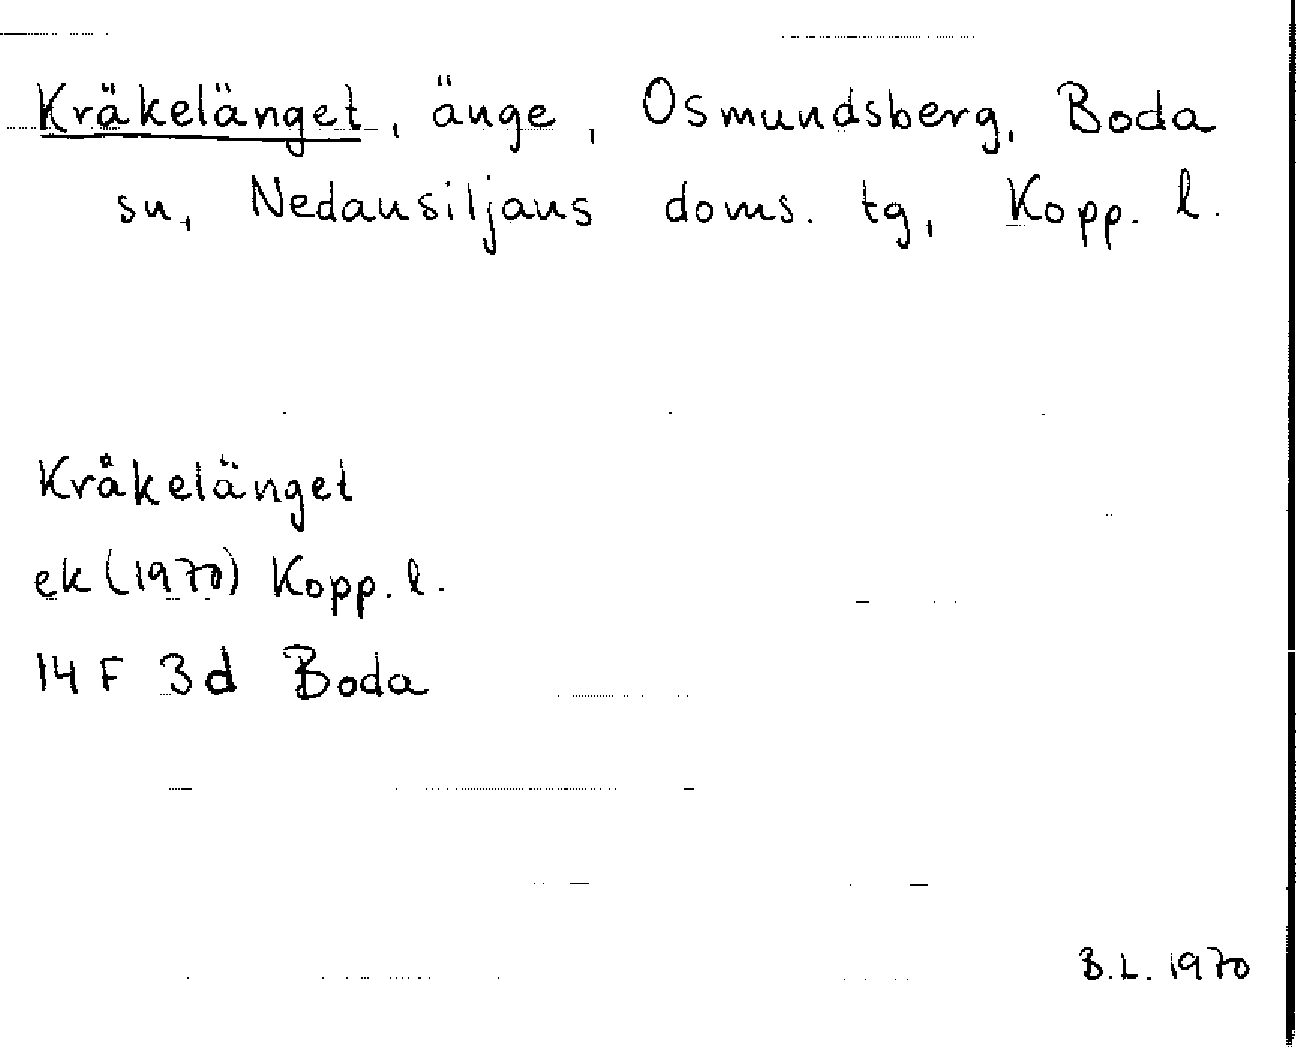 Kräkelänget, änge, Osmundsberg, Boda
sn, Nedansiljans doms. tg, Kopp. l.
Kråkelänget
ek (1970) Kopp. l.
14 F 3d Boda
B.L. 1970